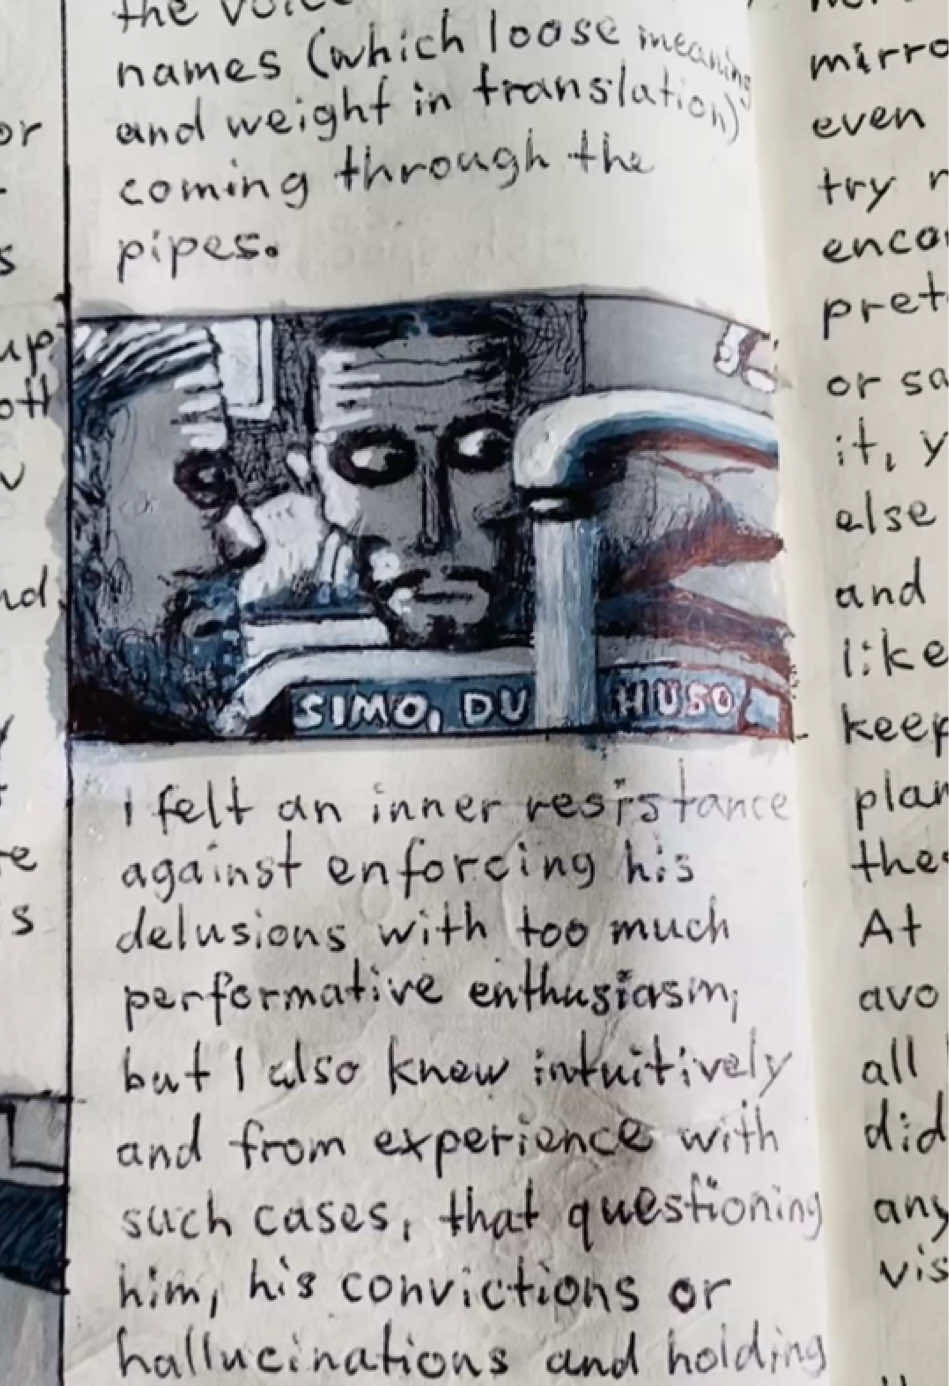 the voice
names (which loose meaning
and weight in translation)
coming through the
pipes.
SIMO, DU HUSO
i felt an inner resistance
against enforcing his
delusions with too much
performative enthusiasm,
but I also knew intuitively
and from experience with
such cases, that questioning
him, his convictions or
hallucinations and holding
or
s
up
nd,
y
re
is
mirro
even
try r
enco
pret
or sa
it, y
else
and
like
keep
plan
the
At
avo
all
did
any
vis